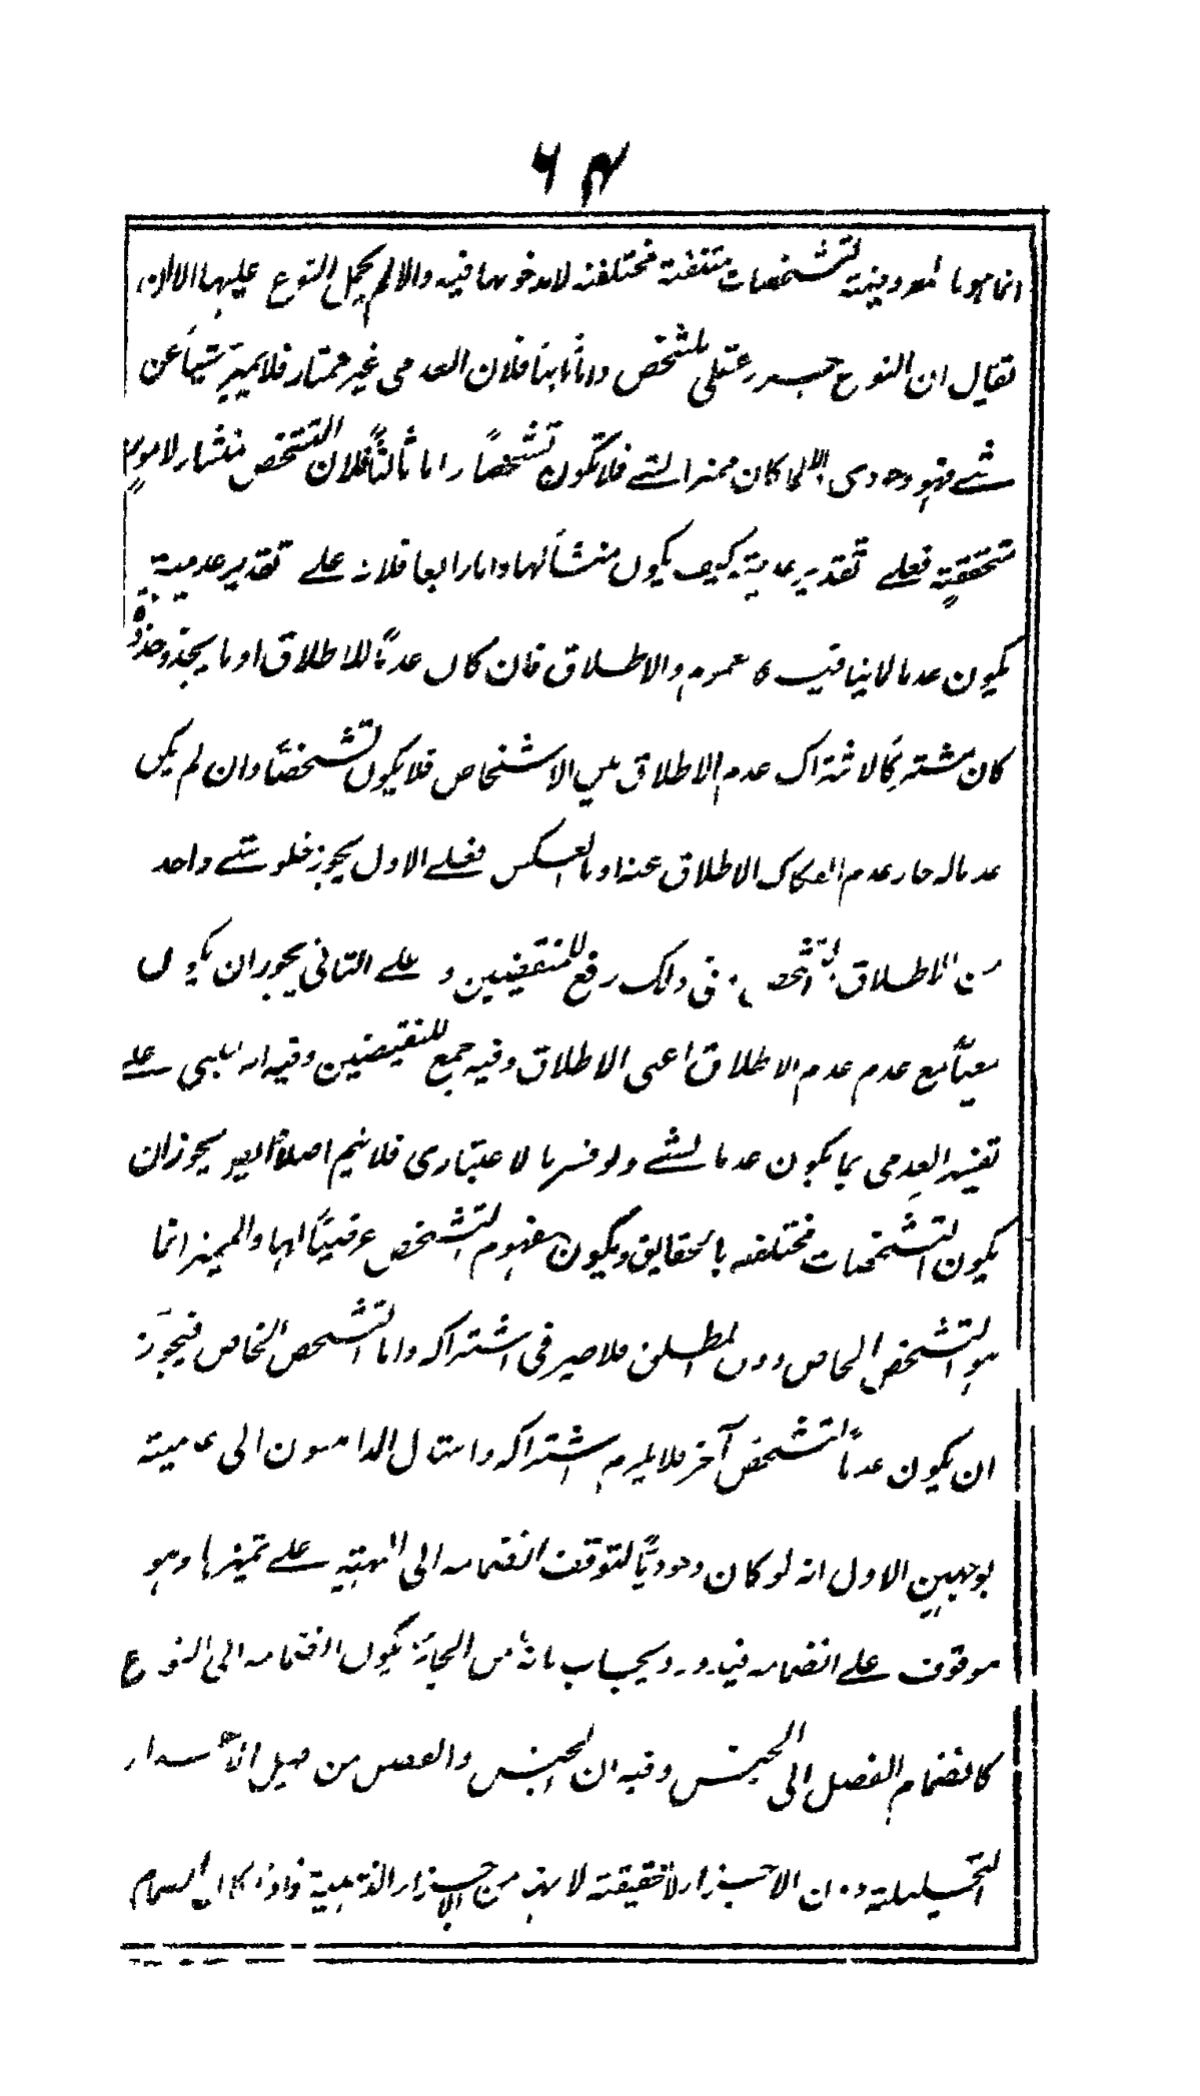 ۶۴
انما هو بالمعروضية لتشخصات متفقة مختلفة لا بدخولها فيه والا لم يحمل النوع عليها الا ان
يقال ان النوع جزء عقلى للشخص واما ثانيا فلان العدمى غير ممتاز فلا يميز شيأ عن
شئ فهو وجودى لما كان مميز الشئ فلا تكون تشخصاً واما ثالثاً فلان التشخص منشأ لامور
متحققة فعلے تقدير عدمية كيف يكون منشأ لها واما رابعا فلانه علے تقدير عدمية
يكون عدما لا ينافيه كالعموم والاطلاق فان كان عدماً للاطلاق او ما يحذو حذوه
كان مشتركاً لاشتراك عدم الاطلاق بين الاشخاص فلا يكون تشخصاً وان لم يكن
عدما له جاز عدم انفكاك الاطلاق عنه او بالعكس فعلے الاول يجوز خلو شئے واحد
من الاطلاق والتشخص وفى ذلك رفع للنقيضين و علے الثانى يجوز ان يكون
معيناً مع عدم عدم الاطلاق اعنى الاطلاق وفيه جمع للنقيضين وفيه انه مبنى علے
تفسير العدمى بما يكون عدما لشئے ولو فسر بالاعتبارى فلا يتم اصلاً ايضا يجوز ان
يكون التشخصات مختلفه بالحقايق ويكون مفهوم التشخص عرضياً لها والمميز انما
هو التشخص الخاص دون المطلق فلا ضير فى اشتراكه واما التشخص الخاص فيجوز
ان يكون عدماً لتشخص آخر فلا يلزم اشتراكه واستدل الذاهبون الى عدميته
بوجهين الاول انه لو كان وجودياً لتوقف انضمامه الى المهية علے تميزها وهو
موقوف علے انضمامه فيدور ويجاب بانه من الجائز يكون انضمامه الى النوع
كانضمام الفصل الى الجنس وفيه ان الجنس والفصل من قبيل الاجزاء
التحليلية دون الاجزاء الحقيقة لا بهذه من الاجزاء الذهنية فاذا كان